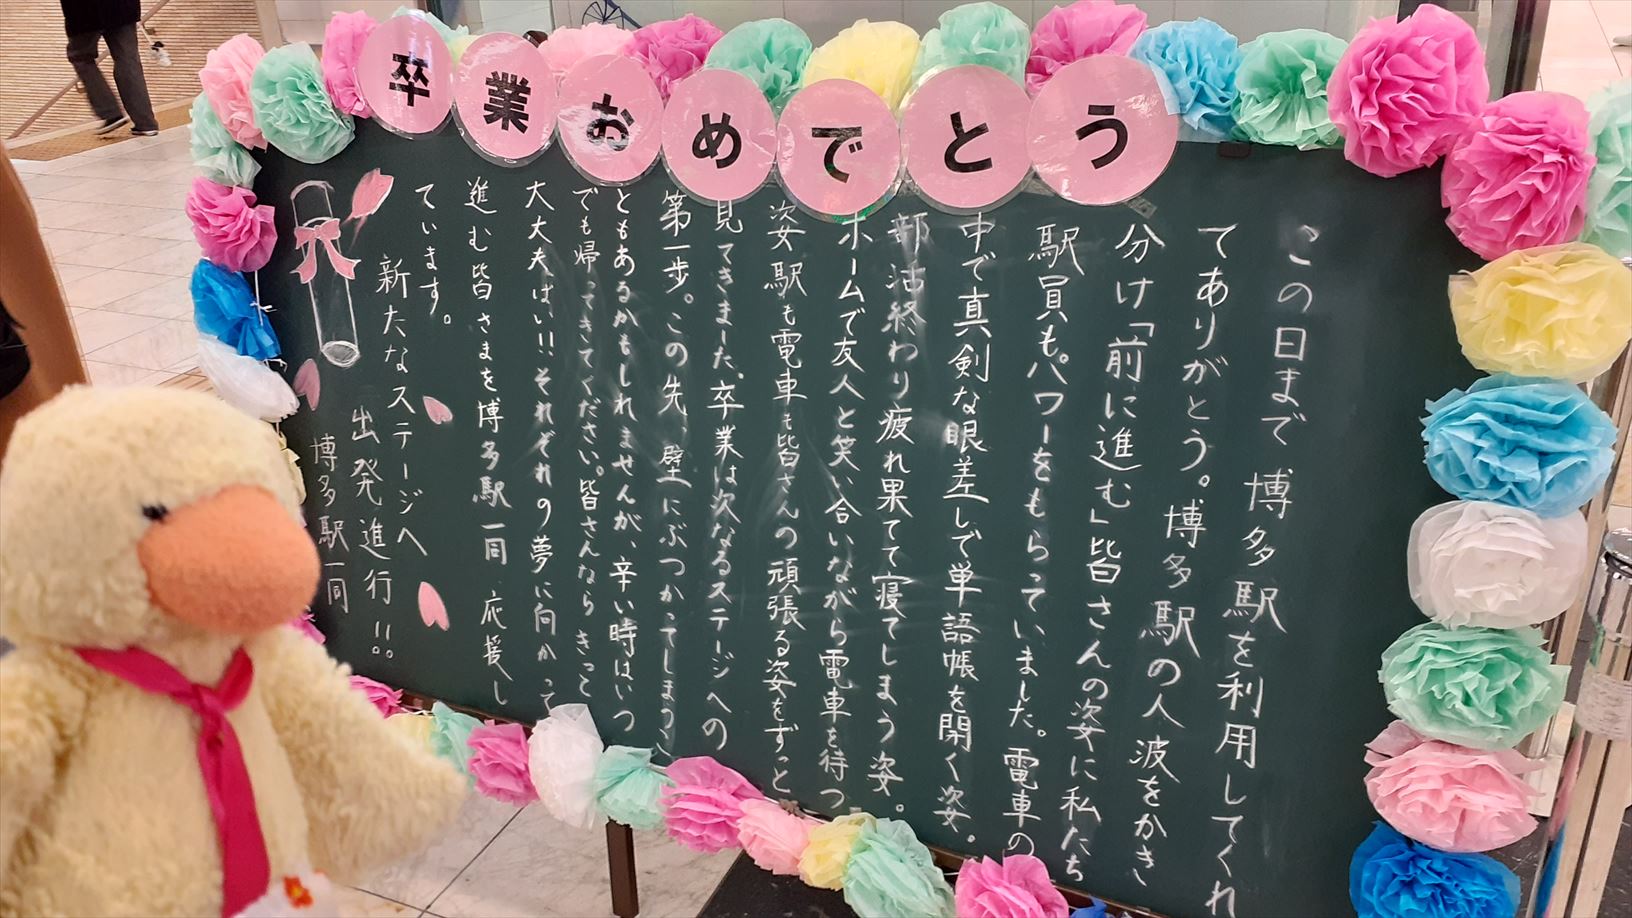 卒業おめでとう
この日まで博多駅を利用してくれ
てありがとう。博多駅の人波をかき
分け「前に進む」皆さんの姿に私たち
駅員も、パワーをもらっていました。電車の
中で真剣な眼差しで単語帳を開く姿。
部活終わり疲れ果てて寝てしまう姿。
ホームで友人と笑い合いながら電車を待つ
姿、駅も電車も皆さんの頑張る姿をずっと
見てきました。卒業は次なるステージへの
第一歩。この先、壁にぶつかってしまうこ
ともあるかもしれませんが、辛い時はいつ
でも帰ってきてください。皆さんなら きっと
大丈夫ばい!!それぞれの夢に向かって
進む皆さまを博多駅一同、応援し
ています。
新たなステージへ
出発進行!!
博多駅一同